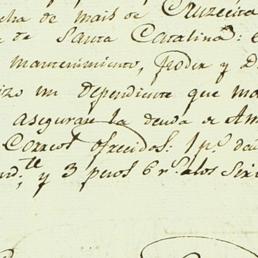 cha de mas de Cruzeira
te de Santa Catalina: e
mantenimiento, poder y d
izo un dependiente que ma
aseguran la deuda de Am
Correos ofrecidos: 1 p.s da
y 3 pesos 6 r.s a los Seri